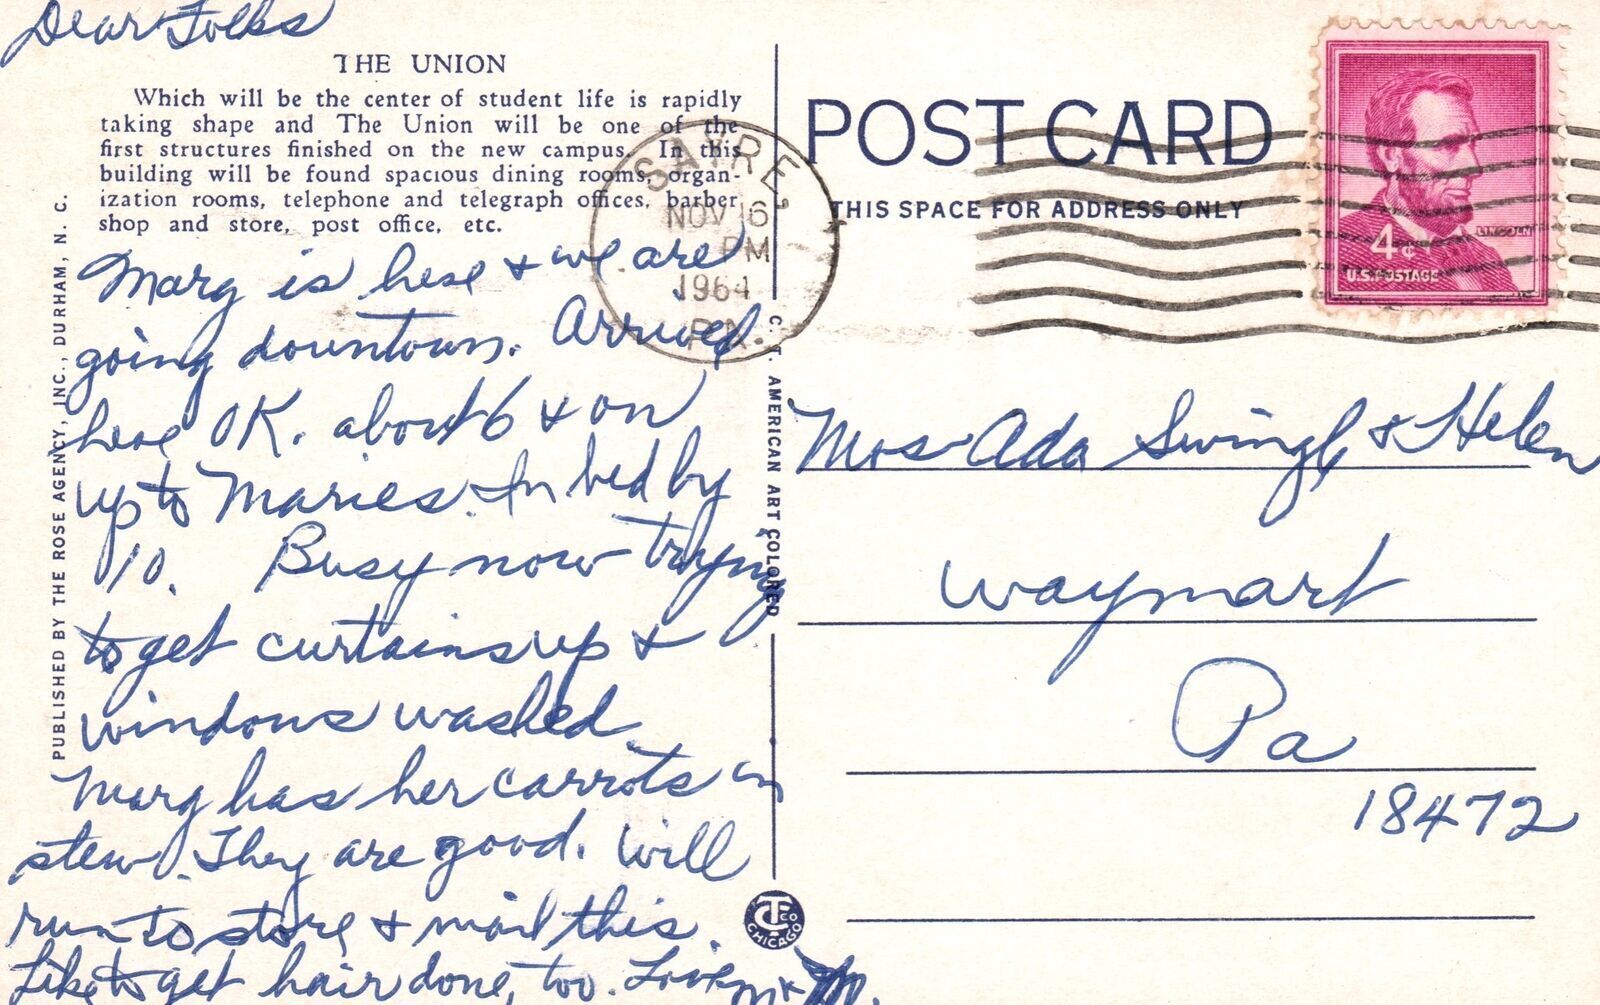 Dear Folks
THE UNION
Which will be the center of student life is rapidly
taking shape and The Union will be one of the
first structures finished on the new campus. In this
building will be found spacious dining rooms, organ-
ization rooms, telephone and telegraph offices, barber
shop and store, post office, etc.
Marg is here & we are
going downtown. Arrived
here OK. about 6 & on
up to Maries. In bed by
10. Busy now trying
to get curtains up &
windows washed.
Marg has her carrots in
stew. They are good. Will
run to store & mail this.
Like to get hair done, too. Love M & M.
PUBLISHED BY THE ROSE AGENCY, INC., DURHAM, N. C.
C. T. AMERICAN ART COLORED
CT CO
CHICAGO
SAYRE,
NOV 16
PM
1964
PA.
POST CARD
THIS SPACE FOR ADDRESS ONLY
LINCOLN
4¢
U.S. POSTAGE
Mrs Ada Swingle & Helen
Waymart
Pa
18472